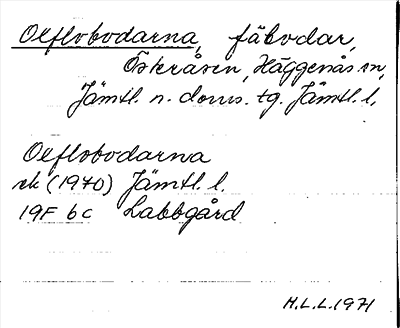 Oeflobodarna, fäbodar,
Österåsen, Häggenås sn,
Jämtl. n. doms. tg. Jämtl. l.
Oeflobodarna
ek (1970) Jämtl. l.
19F 6c Labbgård
H.L.L. 1971